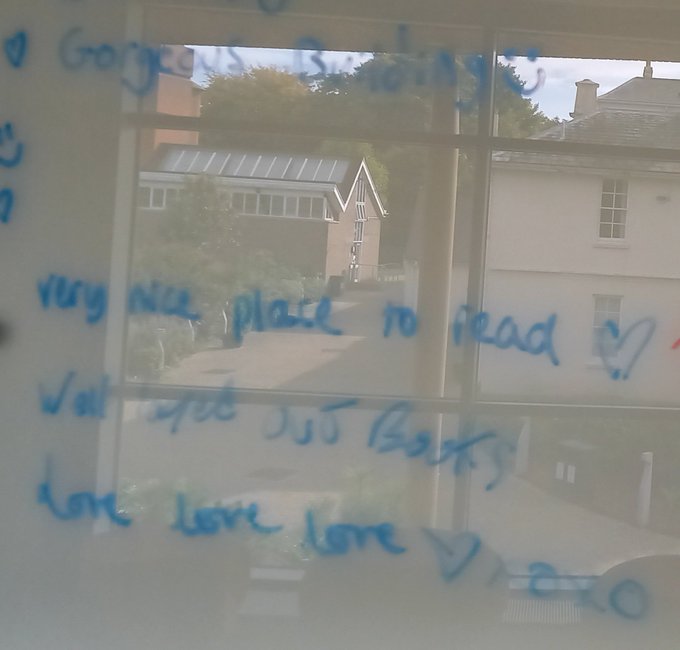 ♡ Gorgeous Building :)
very nice place to read ♡
Well out Books
Love love love ♡ xoxo